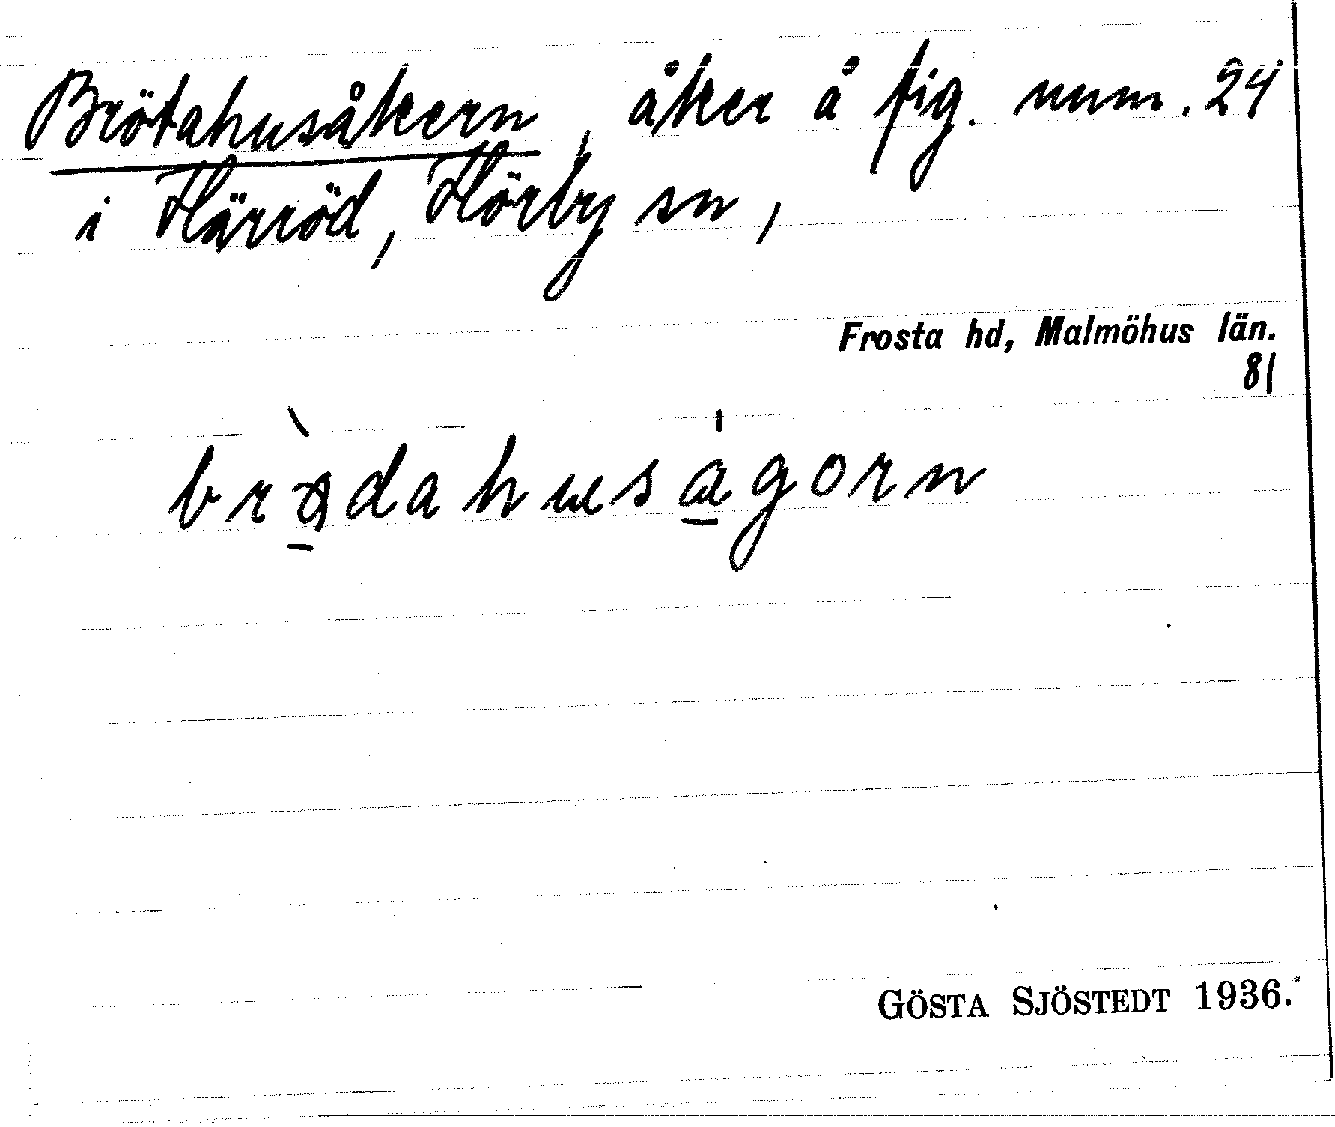 Brötahusåkern, åker å fig. num. 24
i Härröd, Hörby sn,
Frosta hd, Malmöhus län.
81
GÖSTA SJÖSTEDT 1936.